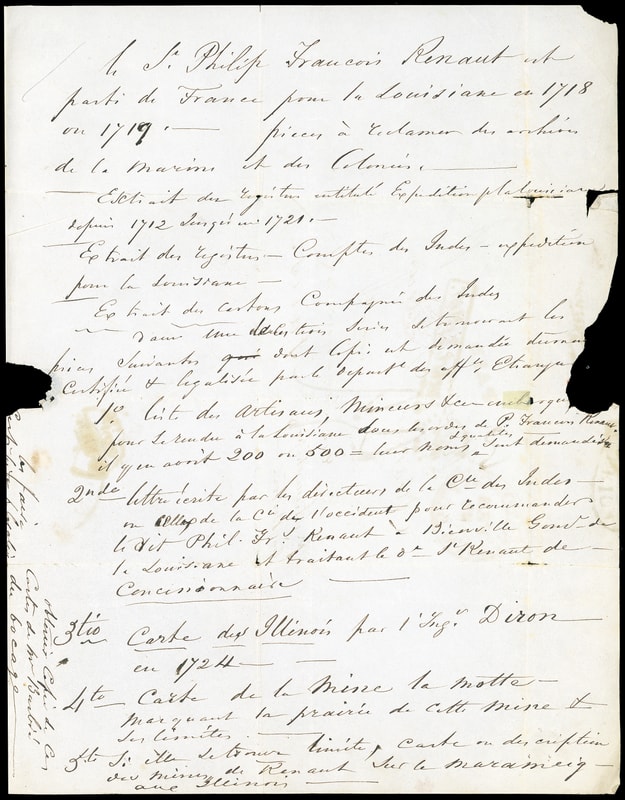 le Sr Philip Francois Renaut est
parti de France pour la Louisiane en 1718
ou 1719. — pieces à reclamer des archives
de la marine et des Colonies. —
Extrait des registres intitulé Expedition p la Louisiane
depuis 1712 Jusqu'en 1721. —
Extrait des registres — Comptes des Indes — expedition
pour la Louisiane —
Extrait des cartons Compagnie des Indes
dans une de ces trois Series se trouvent les
pieces Suivantes dont Copie est demandée
Certifiée & legalisée par le Départt des affs Etrang
1o liste des artisans, Mineurs &c embarqués
pour se rendre à la Louisiane sous les ordres de P. Francois Renaut
il y en avoit 200 ou 500 = leur noms & qualités sont demandés
2nde lettre écrite par les directeurs de la Cie des Indes —
ou celle de la Cie de l'occident pour recommander
le dit Phil. Frs Renaut à Bienville Gouvr de
la Louisiane et traitant le dr Sr Renaut de —
Concessionnaire —
3tio Carte des Illinois par l'Ingr Diron
en 1724 —
4to Carte de la Mine la Motte —
Marquant la prairie de cette Mine &
Ses limites
5to Si elle se trouve limite, carte ou description
des mines de Renaut Sur le maramecig —
aux Illinois —
les faire
Certifier & legalisé
obtenir Copie de Ces
Cartes de mr Barbié
du bocage